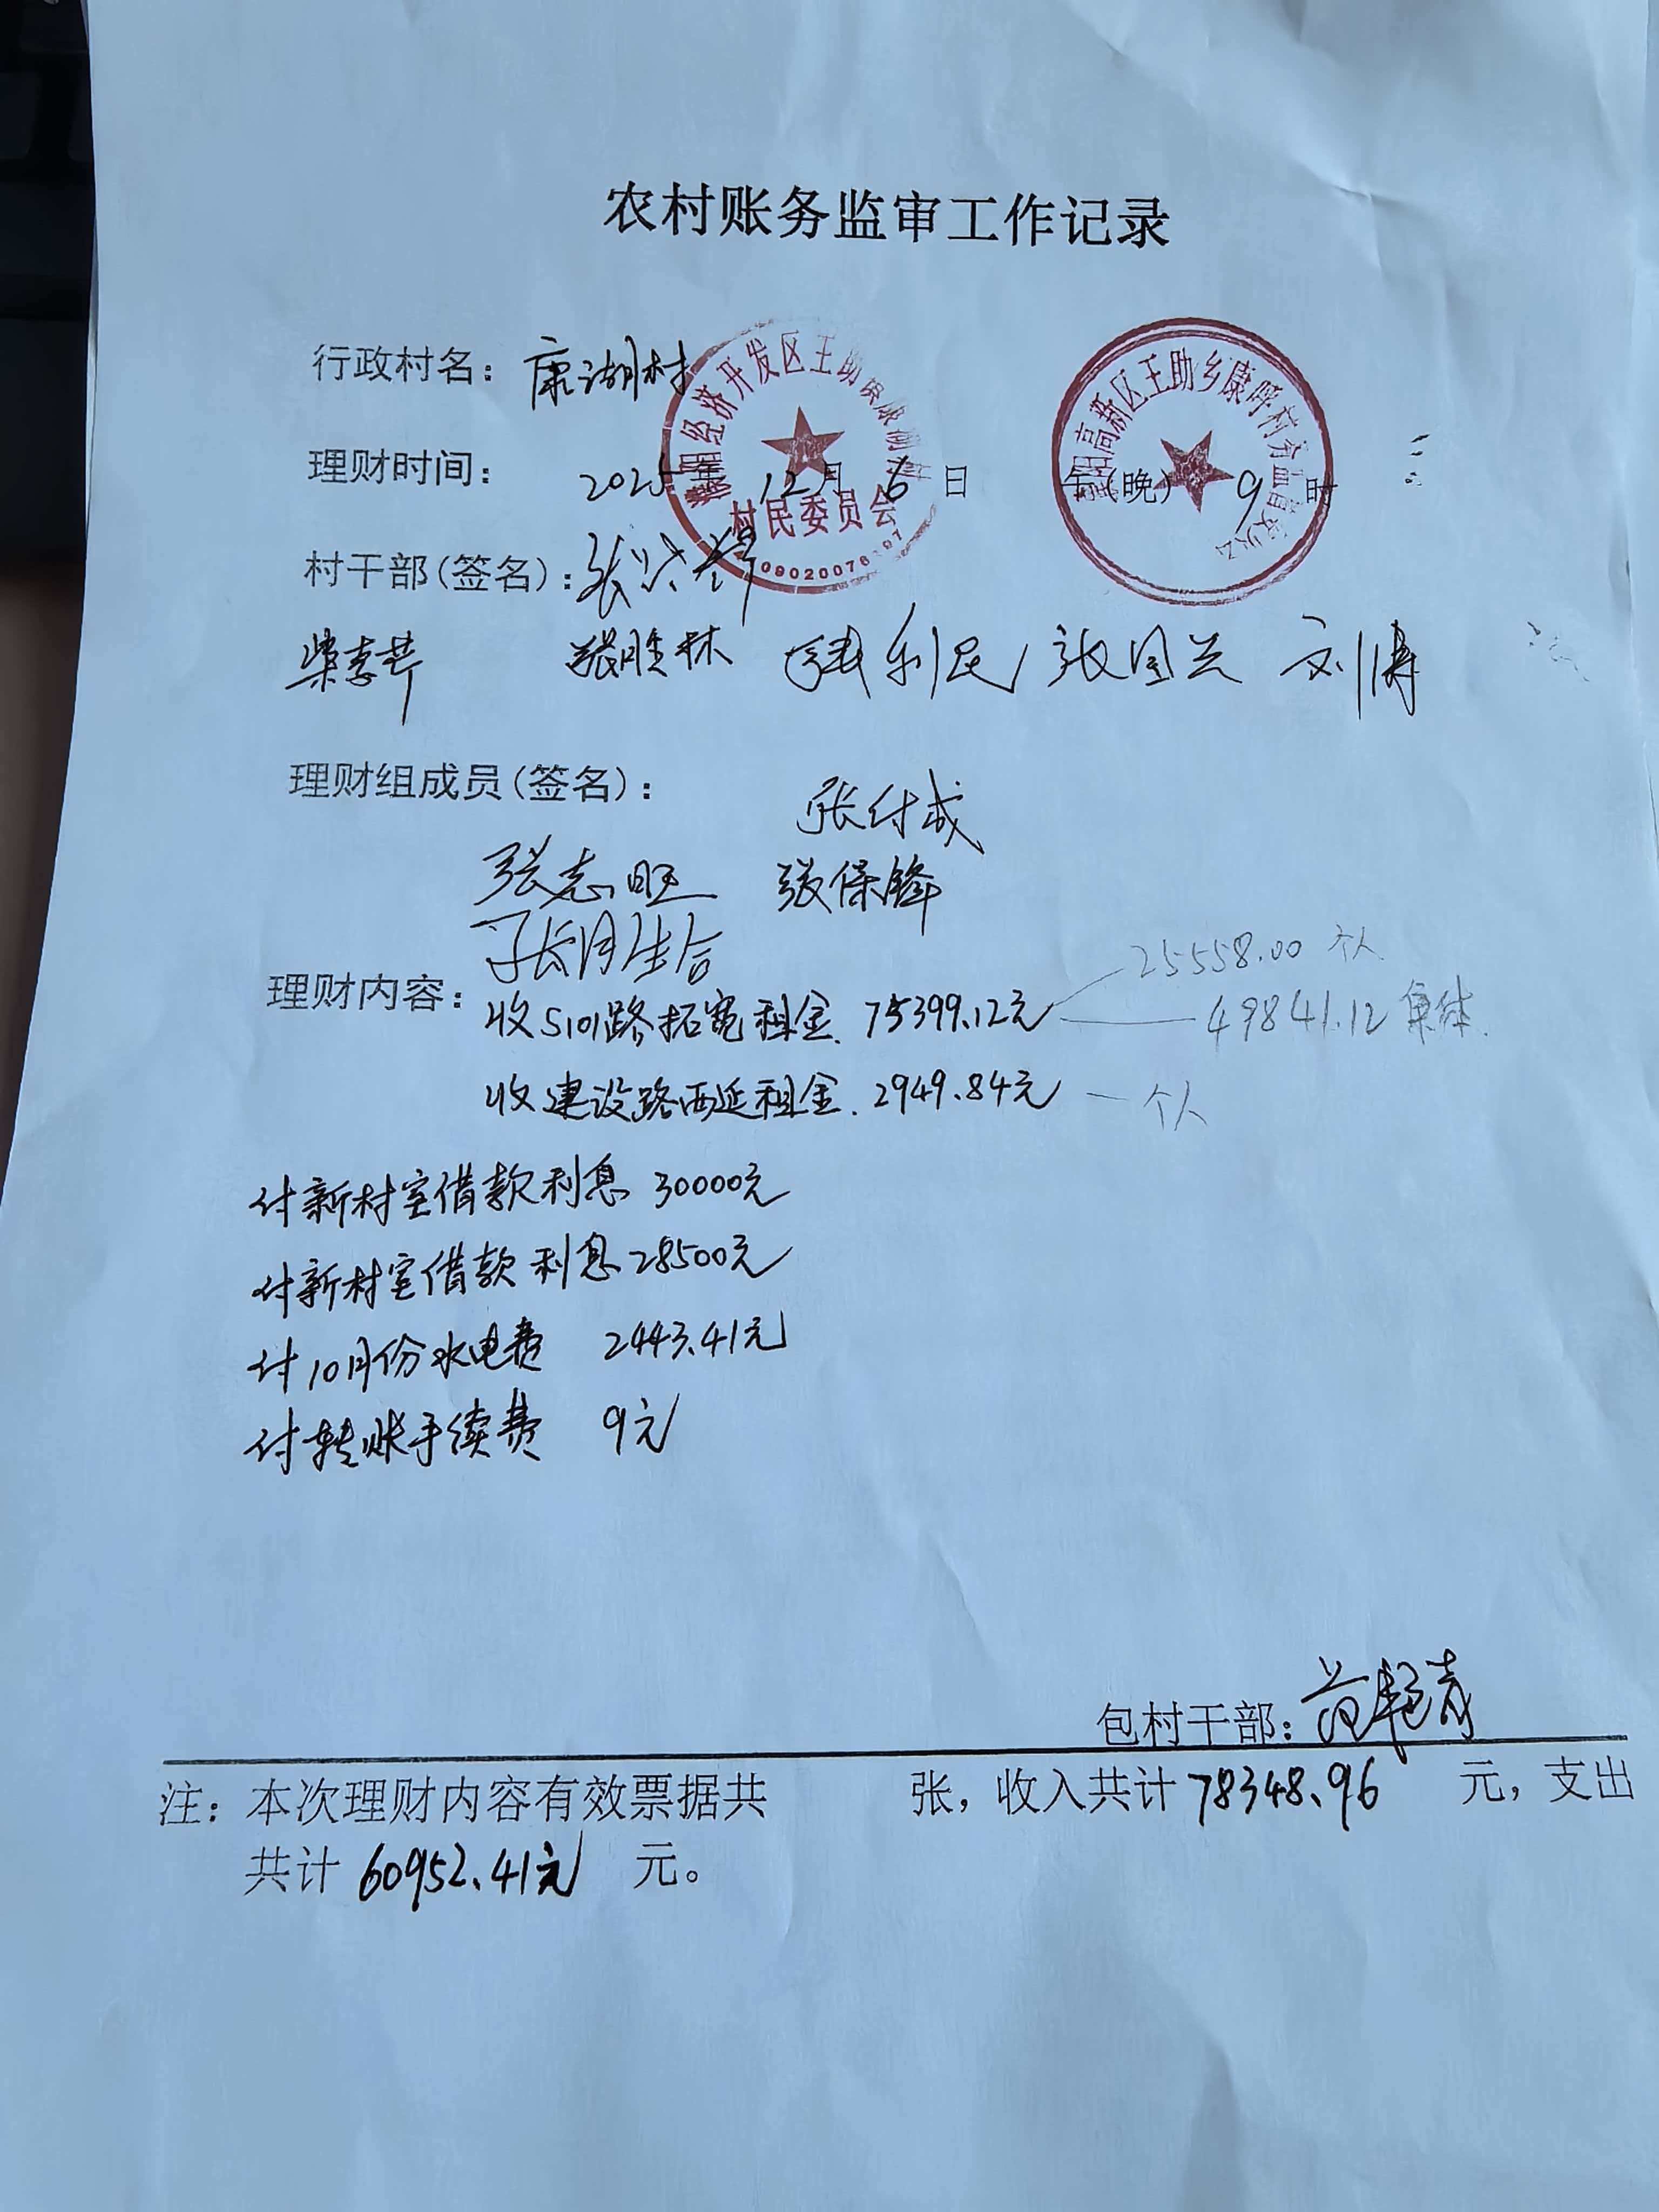 农村账务监审工作记录
行政村名：康湖村
理财时间：2025年12月6日 午(晚) 9时
濮阳经济开发区王助镇康湖村
村民委员会
高新区王助乡康呼村务监督委员会
村干部(签名)：张
柴春芹 张胜林 利民 张国兰 刘博
理财组成员(签名)：张付成
张志旺 张保锋
张同生合
25558.00 个人
理财内容：
收S101路拓宽租金 75399.12元 49841.12 集体
收建设路西延租金 2949.84元 一个人
付新村室借款利息 30000元
付新村室借款利息 28500元
付10月份水电费 2443.41元
付转账手续费 9元
包村干部：
注：本次理财内容有效票据共 张，收入共计 78348.96 元，支出
共计 60952.41元 元。